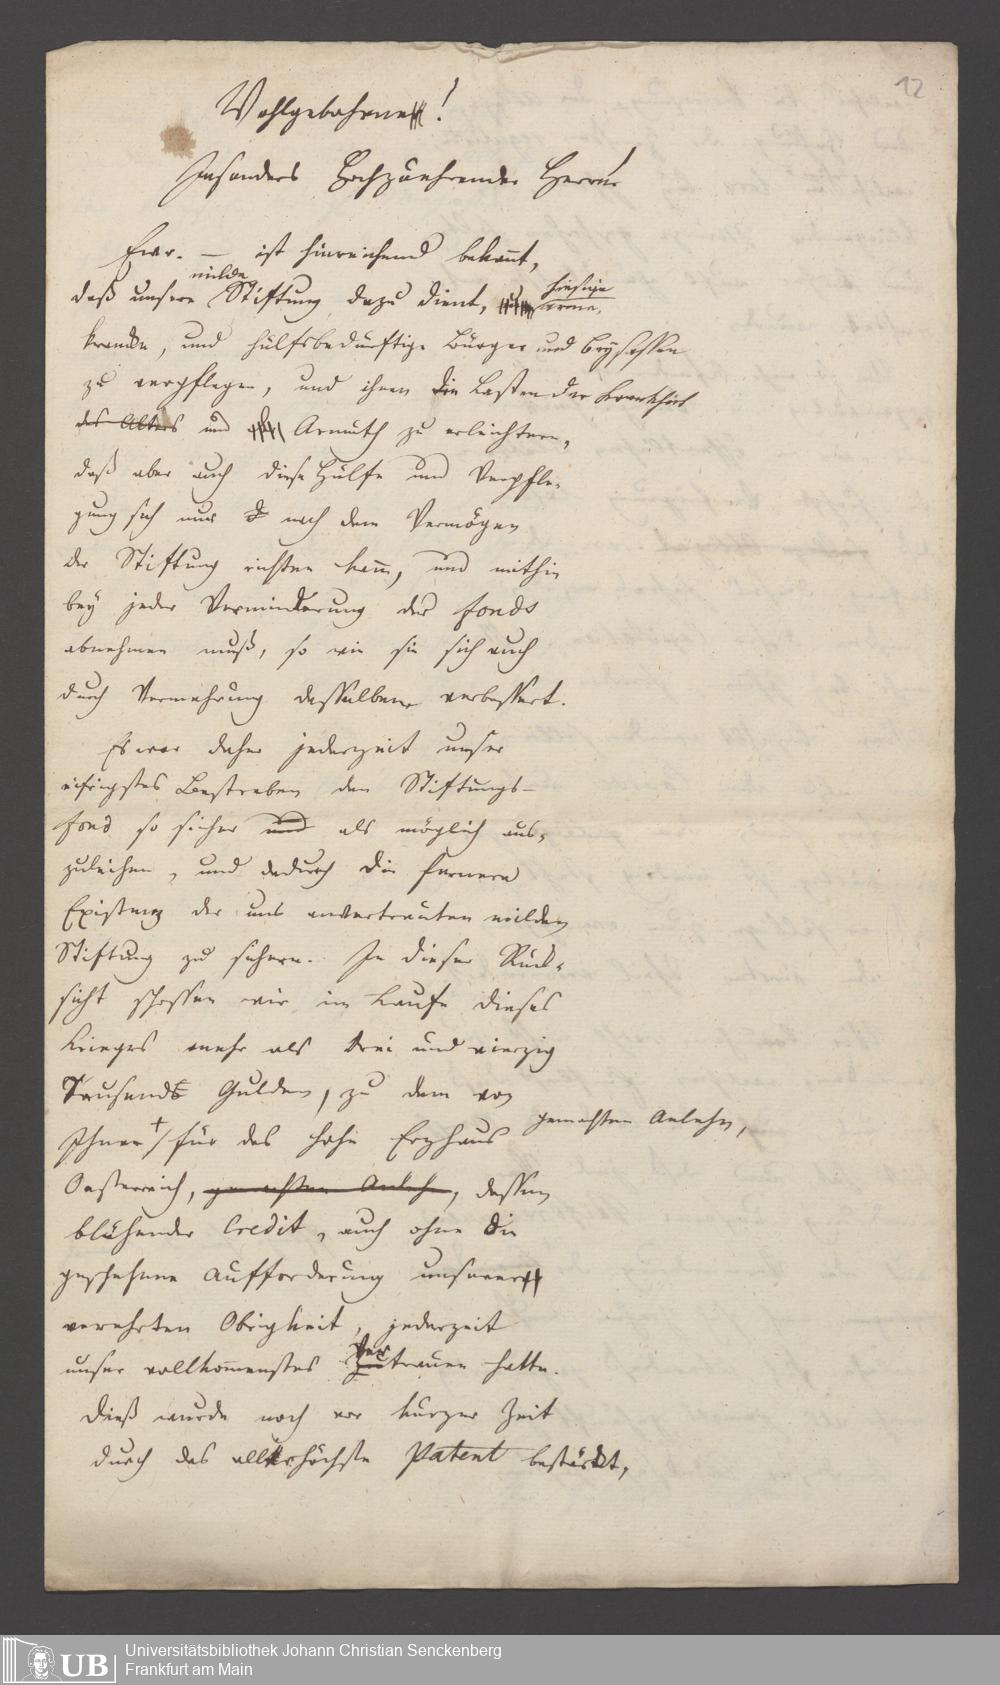 12
Wohlgebohrne!
Insonders Hochzuehrende Herrn
Ewr. — ist hinreichend bekannt,
daß unsere milde Stiftung dazu dient, hiesige arme,
kranke, und hülfsbedürftige Bürger und Beysassen
zu verpflegen, und ihnen die Lasten der Krankheit
des Alters und Armuth zu erleichtern,
daß aber auch diese Hülfe und Verpfle-
gung sich nur nach dem Vermögen
der Stiftung richten kann, und mithin
bey jeder Verminderung des fonds
abnehmen muß, so wie sie sich auch
durch Vermehrung desselben verbessert.
Es war daher jederzeit unser
eifrigstes Bestreben den Stiftungs-
fond so sicher und als möglich aus-
zuleihen, und dadurch die fernere
Existenz der uns anvertrauten milden
Stiftung zu sichern. In dieser Rück-
sicht schossen wir im Laufe dieses
Krieges mehr als drei und vierzig
Tausend Gulden, zu dem von
Ihnen + für das hohe Erzhaus gemachten Anlehn,
Oesterreich, gemachten Anlehn, dessen
blühender Credit, auch ohne die
geschehene Aufforderung unserer
verehrten Obrigkeit, jederzeit
unser vollkommenstes Zu Vertrauen hatte.
Dieß wurde noch vor kurzer Zeit
durch das allerhöchste Patent bestärkt,
UB
Universitätsbibliothek Johann Christian Senckenberg
Frankfurt am Main